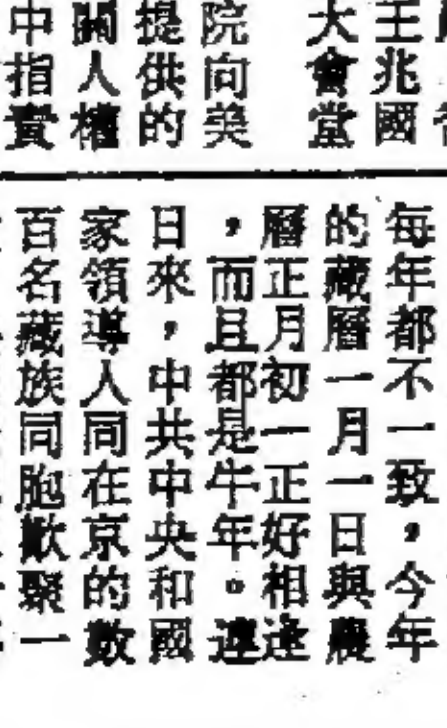 王兆國
大會堂
院向美
提供的
關人權
中指責
每年都不一致，今年
的藏曆一月一日與農
曆正月初一正好相逢
，而且都是牛年。連
日來，中共中央和國
家領導人同在京的數
百名藏族同胞歡聚一